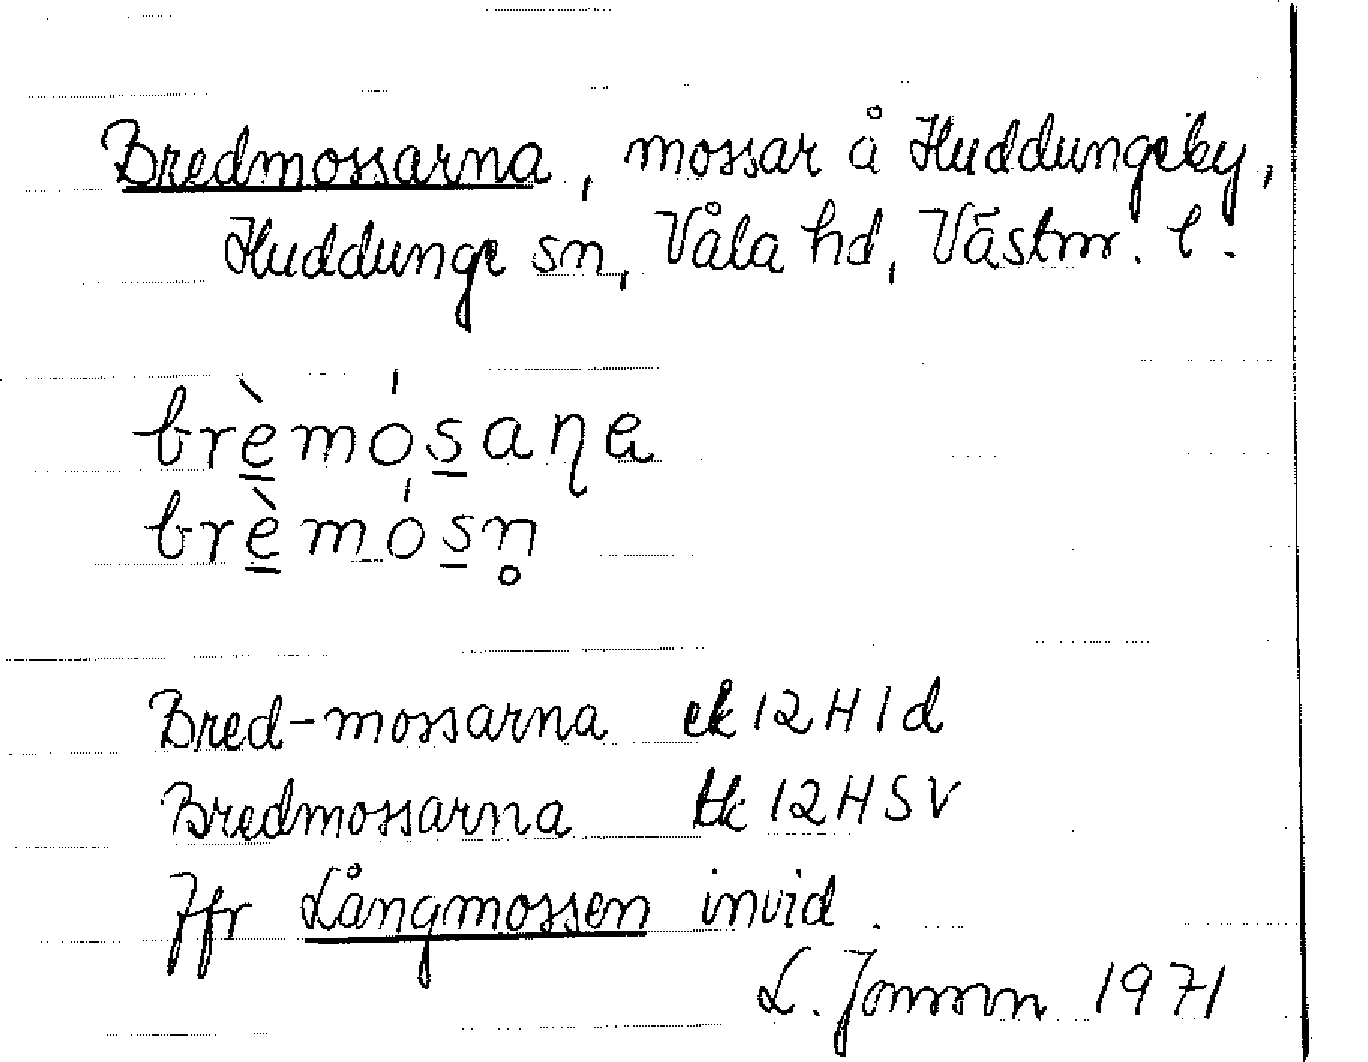 Bredmossarna, mossar å Huddungeby,
Huddunge sn, Våla hd, Västm. l.
brè̱mós̱aꞃa
brè̱mós̱n̥
Bred-mossarna ek 12H1d
Bredmossarna tk 12HSV
Jfr Långmossen invid.
L. Jonsson 1971